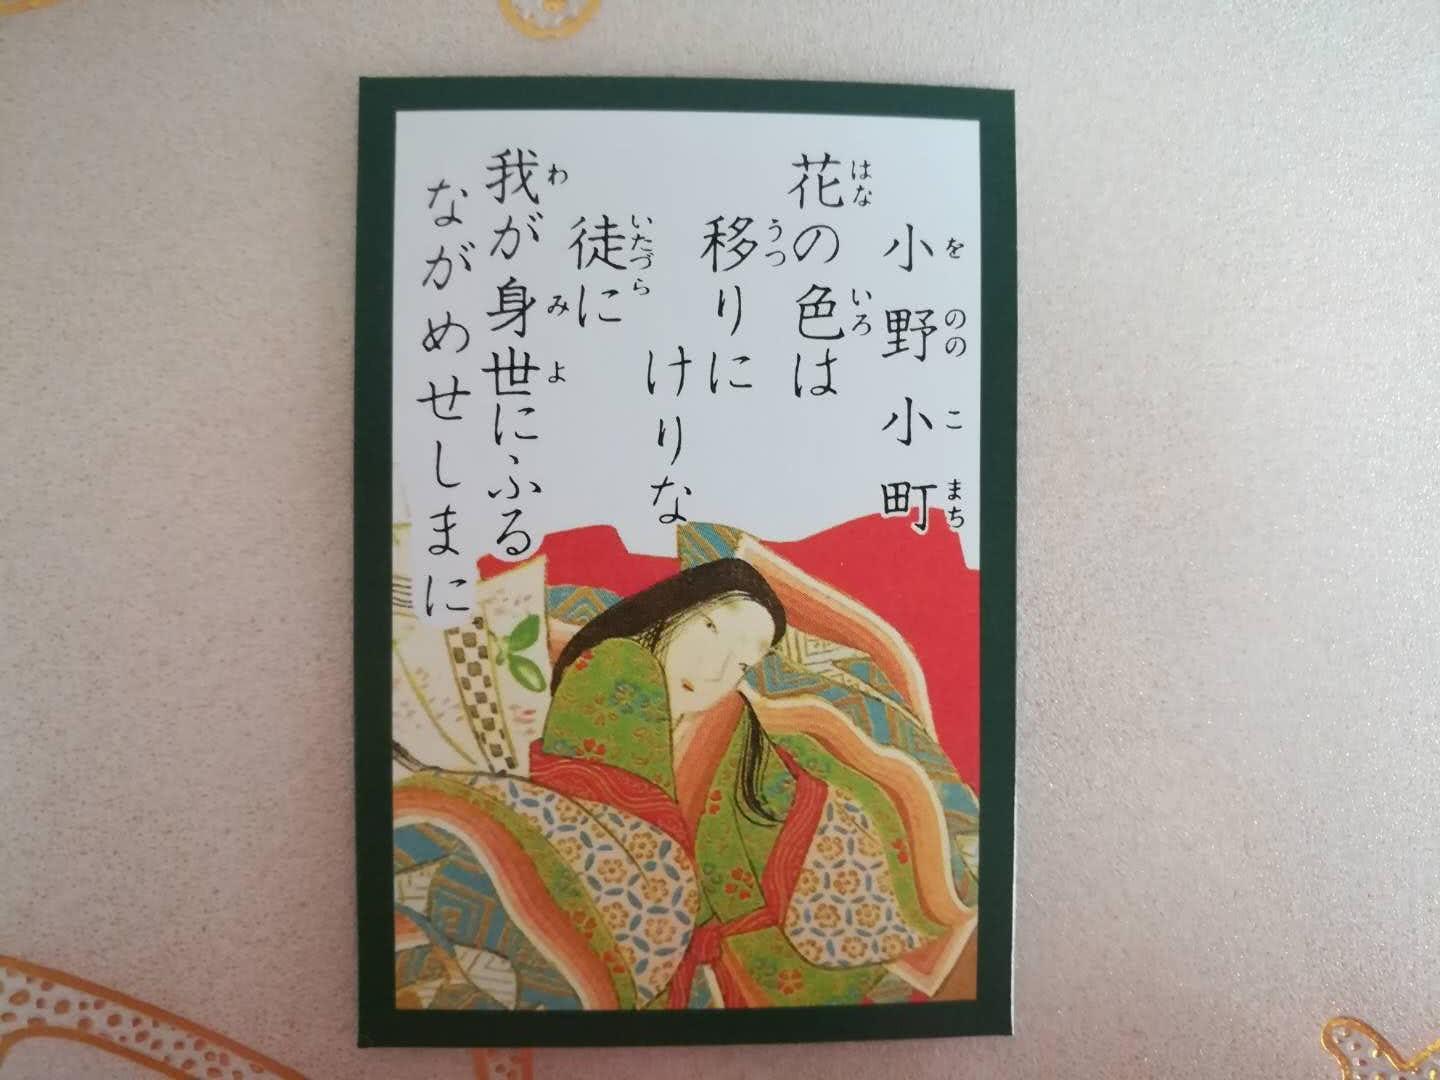 小野小町
をののこまち
花の色は
はないろ
移りに
うつ
けりな
徒に
いたづら
我が身世にふる
わみよ
ながめせしまに